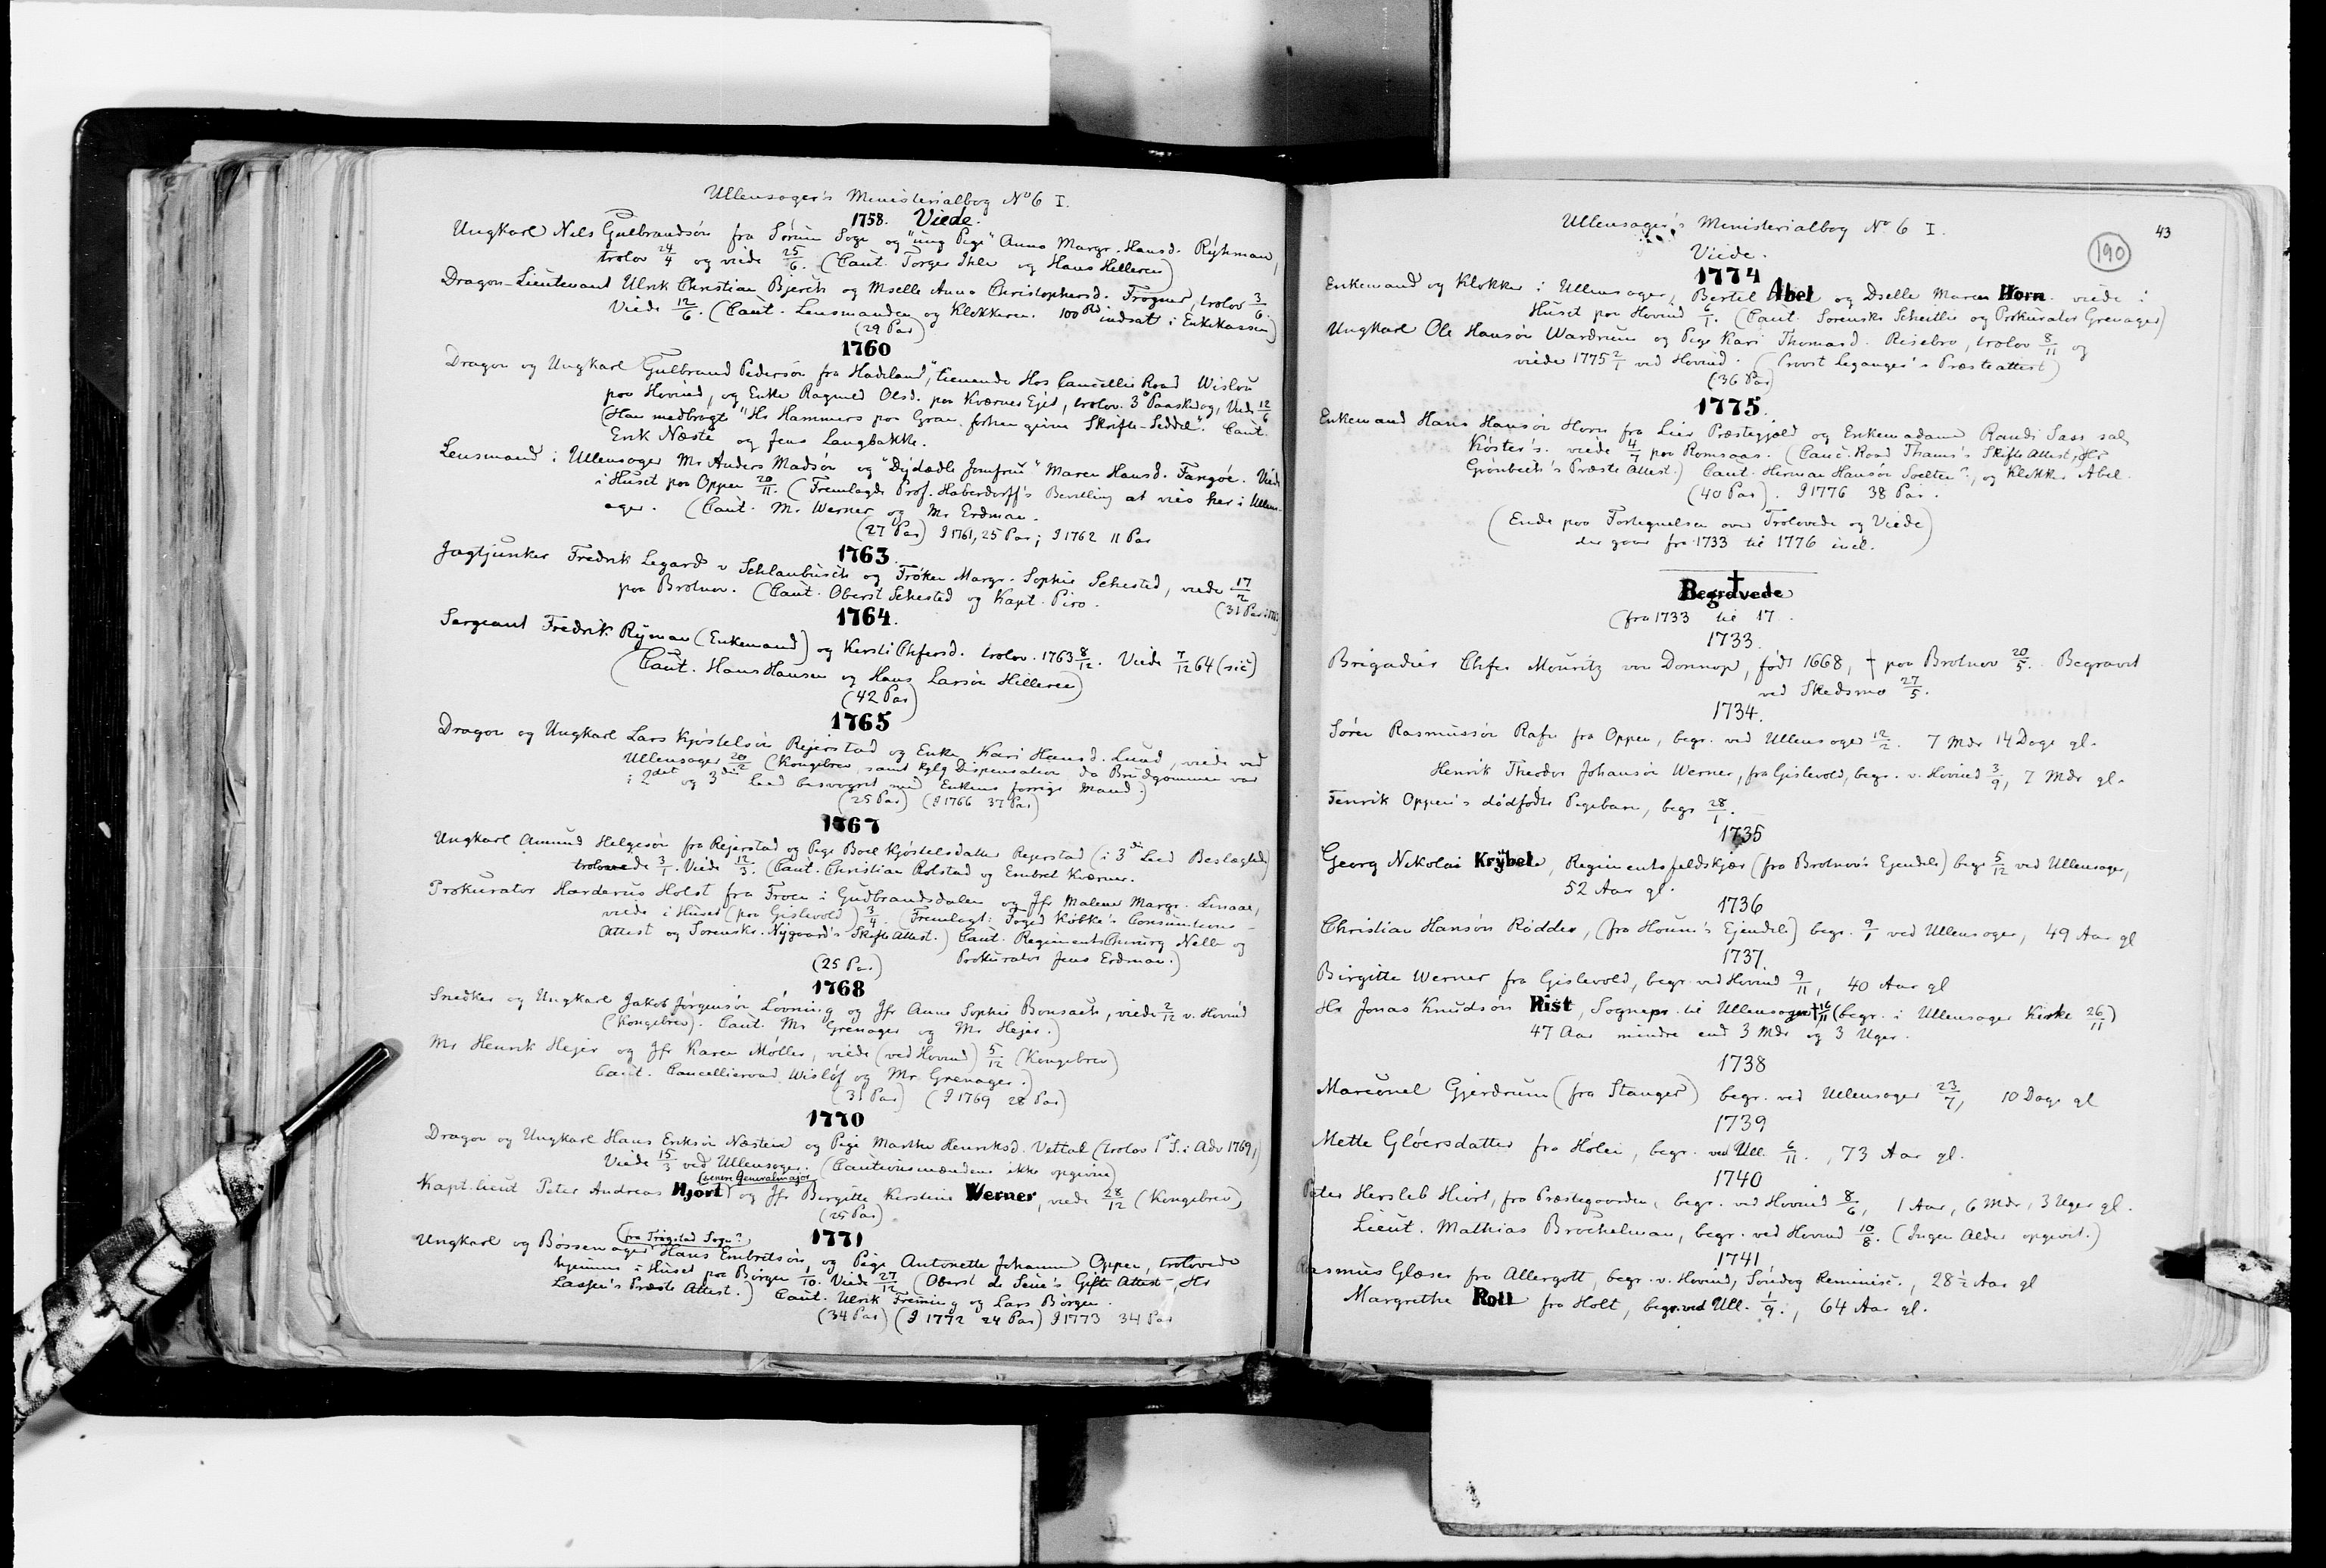 Ullensager's Ministerialbog No 6 I.
1758. Viede.
Ungkarl Nils Gulbrandsön fra Sörum Sogn og "ung Pige" Anna Margr. Hansd. Ryhman,
trolov 24/4 og viede 25/6. (Caut. Torger Ihle og Hans Helleren)
Dragon-Lieutenant Ulrik Christian Bjerch og Mselle Anna Christophersd. Frogner, trolov 3/6.
Viede 12/6. (Caut. Lensmanden og Klokkeren. 100 Rd indsat i Enkekassen)
(29 Par)
1760
Dragon og Ungkarl Gulbrand Pedersön fra Hadeland, "tienende Hos Cancellie Raad Wislöu
paa Hovind, og Enke Ragnild Olsd. paa Kværner Ejet, trolov. 3die Paaskedag, Viede 12/6
(Han medbragt "Hr Hammers paa Gran forhen givne Skrifte-Seddel". Caut.
Erik Næste og Jens Langbakke.
Lensmand i Ullensager Mr Anders Madsön og "Dydædle Jomfrue" Maren Hansd. Fangöe. Viede
i Huset paa Oppen 20/11. (Fremlagde Prof. Haberdorff's Bevilling at vies her i Ullens-
ager. (Caut. Mr Werner og Mr Erdman.
(27 Par) I 1761, 25 Par; I 1762 11 Par
1763.
Jagtjunker Fredrik Legard v Schlanbusch og Fröken Margr. Sophie Sehested, viede 17/2
paa Brotnov. (Caut. Oberst Sehested og Kapt. Piro.
(31 Par)
1764.
Sergeant Fredrik Ryman (Enkemand) og Kersti Chfersd. trolov. 1763 8/12. Viede 7/12 64 (sic)
(Caut. Hans Hansen og Hans Larsön Hilleren)
(42 Par)
1765
Dragon og Ungkarl Lars Kjöstelsön Rejerstad og Enke Kari Hansd. Lund, viede ved
Ullensager 20/2 (Kongebrev samt kglg Dispensation da Brudgommen var
i 2det og 3die Leed besvogret med Enkens forrige Mand.)
(25 Par) (I 1766 37 Par)
1767
Ungkarl Amund Helgesön fra Rejerstad og Pige Boel Kjöstelsdatter Rejerstad (i 3die Leed Beslægtede)
trolovede 3/1. Viede 12/3. (Caut. Christian Rolstad og Embret Kværner.
Prokurator Harderus Holst fra Froen i Gudbrandsdalen og Jfr Malene Margr. Linaae,
viede i Huset (paa Gislevold) 3/4. (Fremlagt: Foged Köbke's Consumtions-
Attest og Sorenskr. Nygaard's Skifte Attest.) Caut. Regiments Chirurg Nelle og
Prokurator Jens Erdman.)
(25 Par)
1768
Snedker og Ungkarl Jakob Jörgensön Lövning og Jfr Anne Sophie Bonsach, viede 2/12 v. Hovind
(Kongebrev). Caut. Mr Grenager og Mr Hejer.)
Mr Henrik Hejer og Jfr Karen Möller, viede (ved Hovind) 5/12 (Kongebrev)
Caut. Cancellieraad Wislöf og Mr Grenager.)
(31 Par) (I 1769 28 Par)
1770
Dragon og Ungkarl Hans Eriksön Næsteie og Pige Marthe Henriksd. Vettal (trolov 1ste S. i Adv 1769,)
Viede 15/3 ved Ullensager. (Cautionsmændene ikke opgivne)
(senere Generalmajor
Kapt. lieut Peter Andreas Hjort) og Jfr Birgitte Kerstine Werner, viede 28/12 (Kongebrev)
(25 Par)
1771
(fra Trögstad Sogn?)
Ungkarl og Bössemager Hans Embretsön, og Pige Antonette Johanne Oppen, trolovede
hjemme i Huset paa Börgen 1/10. Viede 27/12 (Oberst de Seue's Gifte Attest, Hr
Lassen's Præste Attest.) Caut. Ulrik Freming og Lars Börgen.
(34 Par) (I 1772 24 Par) I 1773 34 Par
Ullensager's Ministerialbog No 6 I.
43
190
Viede.
1774
Enkemand og Klokker i Ullensager, Bertel Abel og Dselle Maren Horn viede i
Huset paa Hovind 6/1. (Caut. Sorenskr Scheitlie og Prokurator Grenager)
Ungkarl Ole Hansön Wardrum og Pige Kari Thomasd. Risebro, trolov 8/11 og
viede 1775 2/1 ved Hovind. (Provst Leganger's Præsteattest)
(36 Par)
1775.
Enkemand Hans Hansön Horn fra Lier Præstegjeld og Enkemadame Randi Sass sal.
Köster's. viede 4/7 paa Romsaas. (Canc. Raad Thams's Skifte Attest, Hr
Grönbech's Præste Attest.) Caut. Herman Hansön Soelter?, og Klokker Abel.
(40 Par). I 1776 38 Par.
(Ende paa Fortegnelsen over Trolovede og Viede)
der gaar fra 1733 til 1776 incl.
Begravede
(fra 1733 til 17 .
1733.
Brigadier Chfer Mouritz von Donnop, födt 1668, † paa Brotnov 20/5. Begravet
ved Skedsmo 27/5.
1734.
Sören Rasmussön Rafn fra Oppen, begr. ved Ullensager 12/2. 7 Mdr 14 Dage gl.
Henrik Theodor Johansön Werner, fra Gislevold, begr. v. Hovind 3/9, 7 Mdr gl.
Fenrik Oppen's dödfödte Pigebarn, begr 28/1.
1735
Georg Nikolai Krybele, Regimentsfeldskjær (fra Brotnov's Ejendele) begr 5/12 ved Ullensager,
52 Aar gl.
1736
Christian Hansön Rödder, (fra Houm's Ejendele) begr. 9/1 ved Ullensager, 49 Aar gl
1737.
Birgitte Werner fra Gislevold, begr. ved Hovind 9/11, 40 Aar gl
Hr Jonas Knudsön Rist, Sognepr. til Ullensager † 16/11 (begr. i Ullensager Kirke 26/11)
47 Aar mindre end 3 Mdr og 3 Uger.
1738
Marcunel Gjerdrum (fra Stanger) begr. ved Ullensager 23/7, 10 Dage gl
1739
Mette Glöersdatter fra Hölen, begr. ved Ull. 6/11., 73 Aar gl.
1740
Peter Hersleb Hiort, fra Præstegaarden, begr. ved Hovind 8/6, 1 Aar, 6 Mdr, 3 Uger gl.
Lieut. Mathias Brochelman, begr. ved Hovind 10/8. (Ingen Alder opgivet.)
1741
Rasmus Glæser fra Allergott, begr. v. Hovind, Söndag Reminisc., 28 ½ Aar gl
Margrethe Roll fra Holt, begr. ved Ull. 1/9., 64 Aar gl.